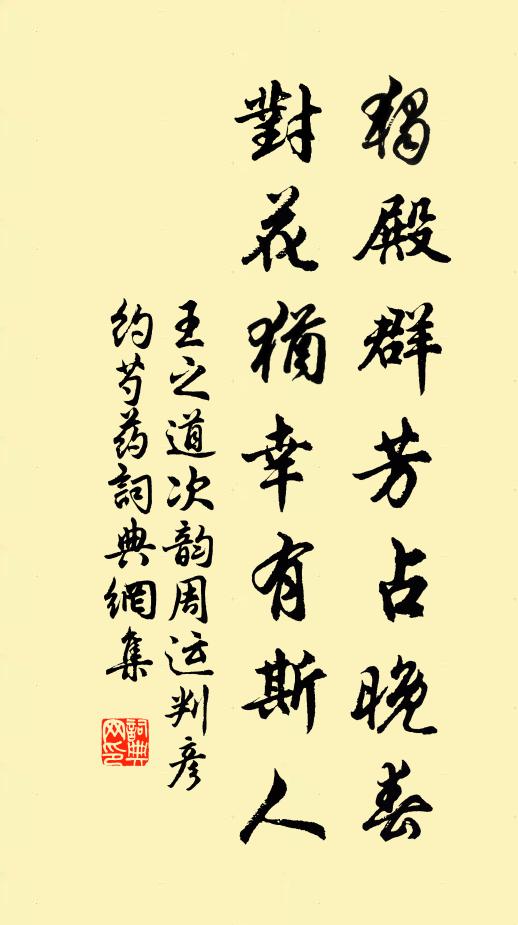 獨殿群芳占晚春
對花猶幸有斯人
王之道次韵周运判彦
约芍药詞典網集
詞典
网印